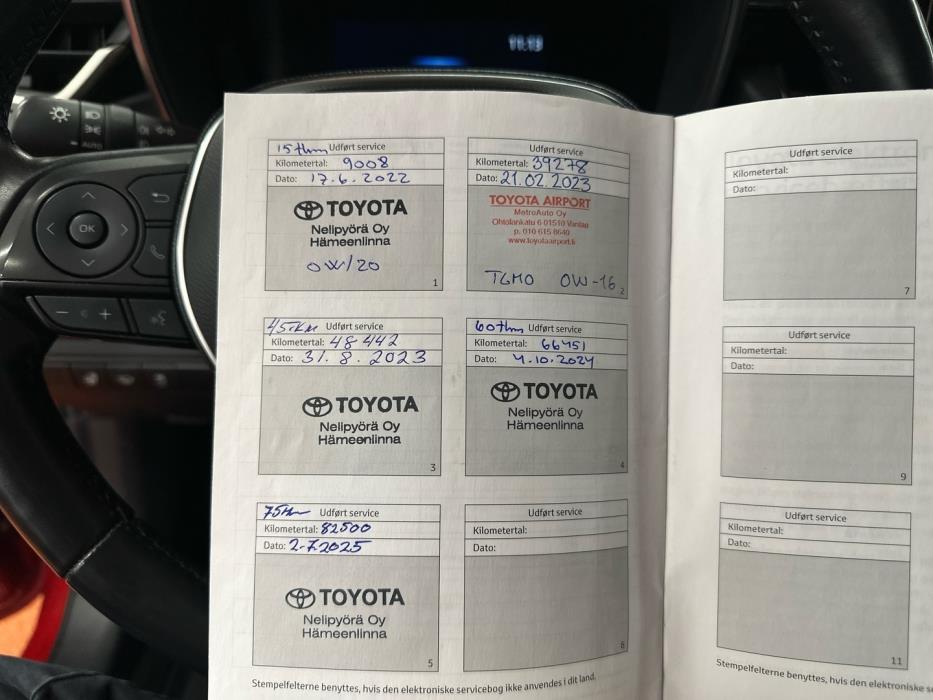 11:13
AUTO
OK
15 thm Udført service
Kilometertal: 9008
Dato: 17.6.2022
TOYOTA
Nelipyörä Oy
Hämeenlinna
0W/20
1
Udført service
Kilometertal: 39278
Dato: 21.02.2023
TOYOTA AIRPORT
MetroAuto Oy
Ohtolankatu 6 01510 Vantaa
p. 010 615 8640
www.toyotaairport.fi
TGMO 0W-16
2
45tkm Udført service
Kilometertal: 48442
Dato: 31.8.2023
TOYOTA
Nelipyörä Oy
Hämeenlinna
3
60thm Udført service
Kilometertal: 66451
Dato: 4.10.2024
TOYOTA
Nelipyörä Oy
Hämeenlinna
4
Udført service
Kilometertal: 82500
Dato: 2.7.2025
TOYOTA
Nelipyörä Oy
Hämeenlinna
5
Udført service
Kilometertal:
Dato:
6
Stempelfelterne benyttes, hvis den elektroniske servicebog ikke anvendes i dit land.
Udført service
Kilometertal:
Dato:
7
Udført service
Kilometertal:
Dato:
9
Udført service
Kilometertal:
Dato:
11
Stempelfelterne benyttes, hvis den elektroniske se